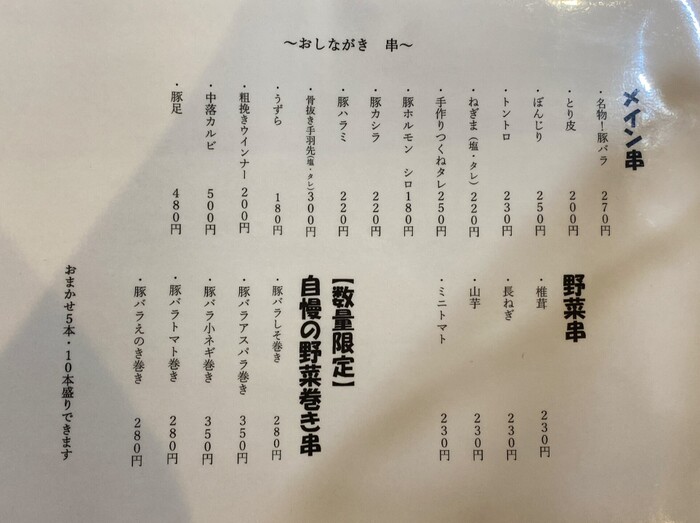 ～おしながき　串～
メイン串
・名物！豚バラ　270円
・とり皮　200円
・ぼんじり　250円
・トントロ　230円
・ねぎま（塩・タレ）　220円
・手作りつくねタレ　250円
・豚ホルモン　シロ　180円
・豚カシラ　220円
・豚ハラミ　220円
・骨抜き手羽先（塩・タレ）　300円
・うずら　180円
・粗挽きウインナー　200円
・中落カルビ　500円
・豚足　480円
野菜串
・椎茸　230円
・長ねぎ　230円
・山芋　230円
・ミニトマト　230円
【数量限定】
自慢の野菜巻き串
・豚バラしそ巻き　280円
・豚バラアスパラ巻き　350円
・豚バラ小ネギ巻き　350円
・豚バラトマト巻き　280円
・豚バラえのき巻き　280円
おまかせ5本・10本盛りできます